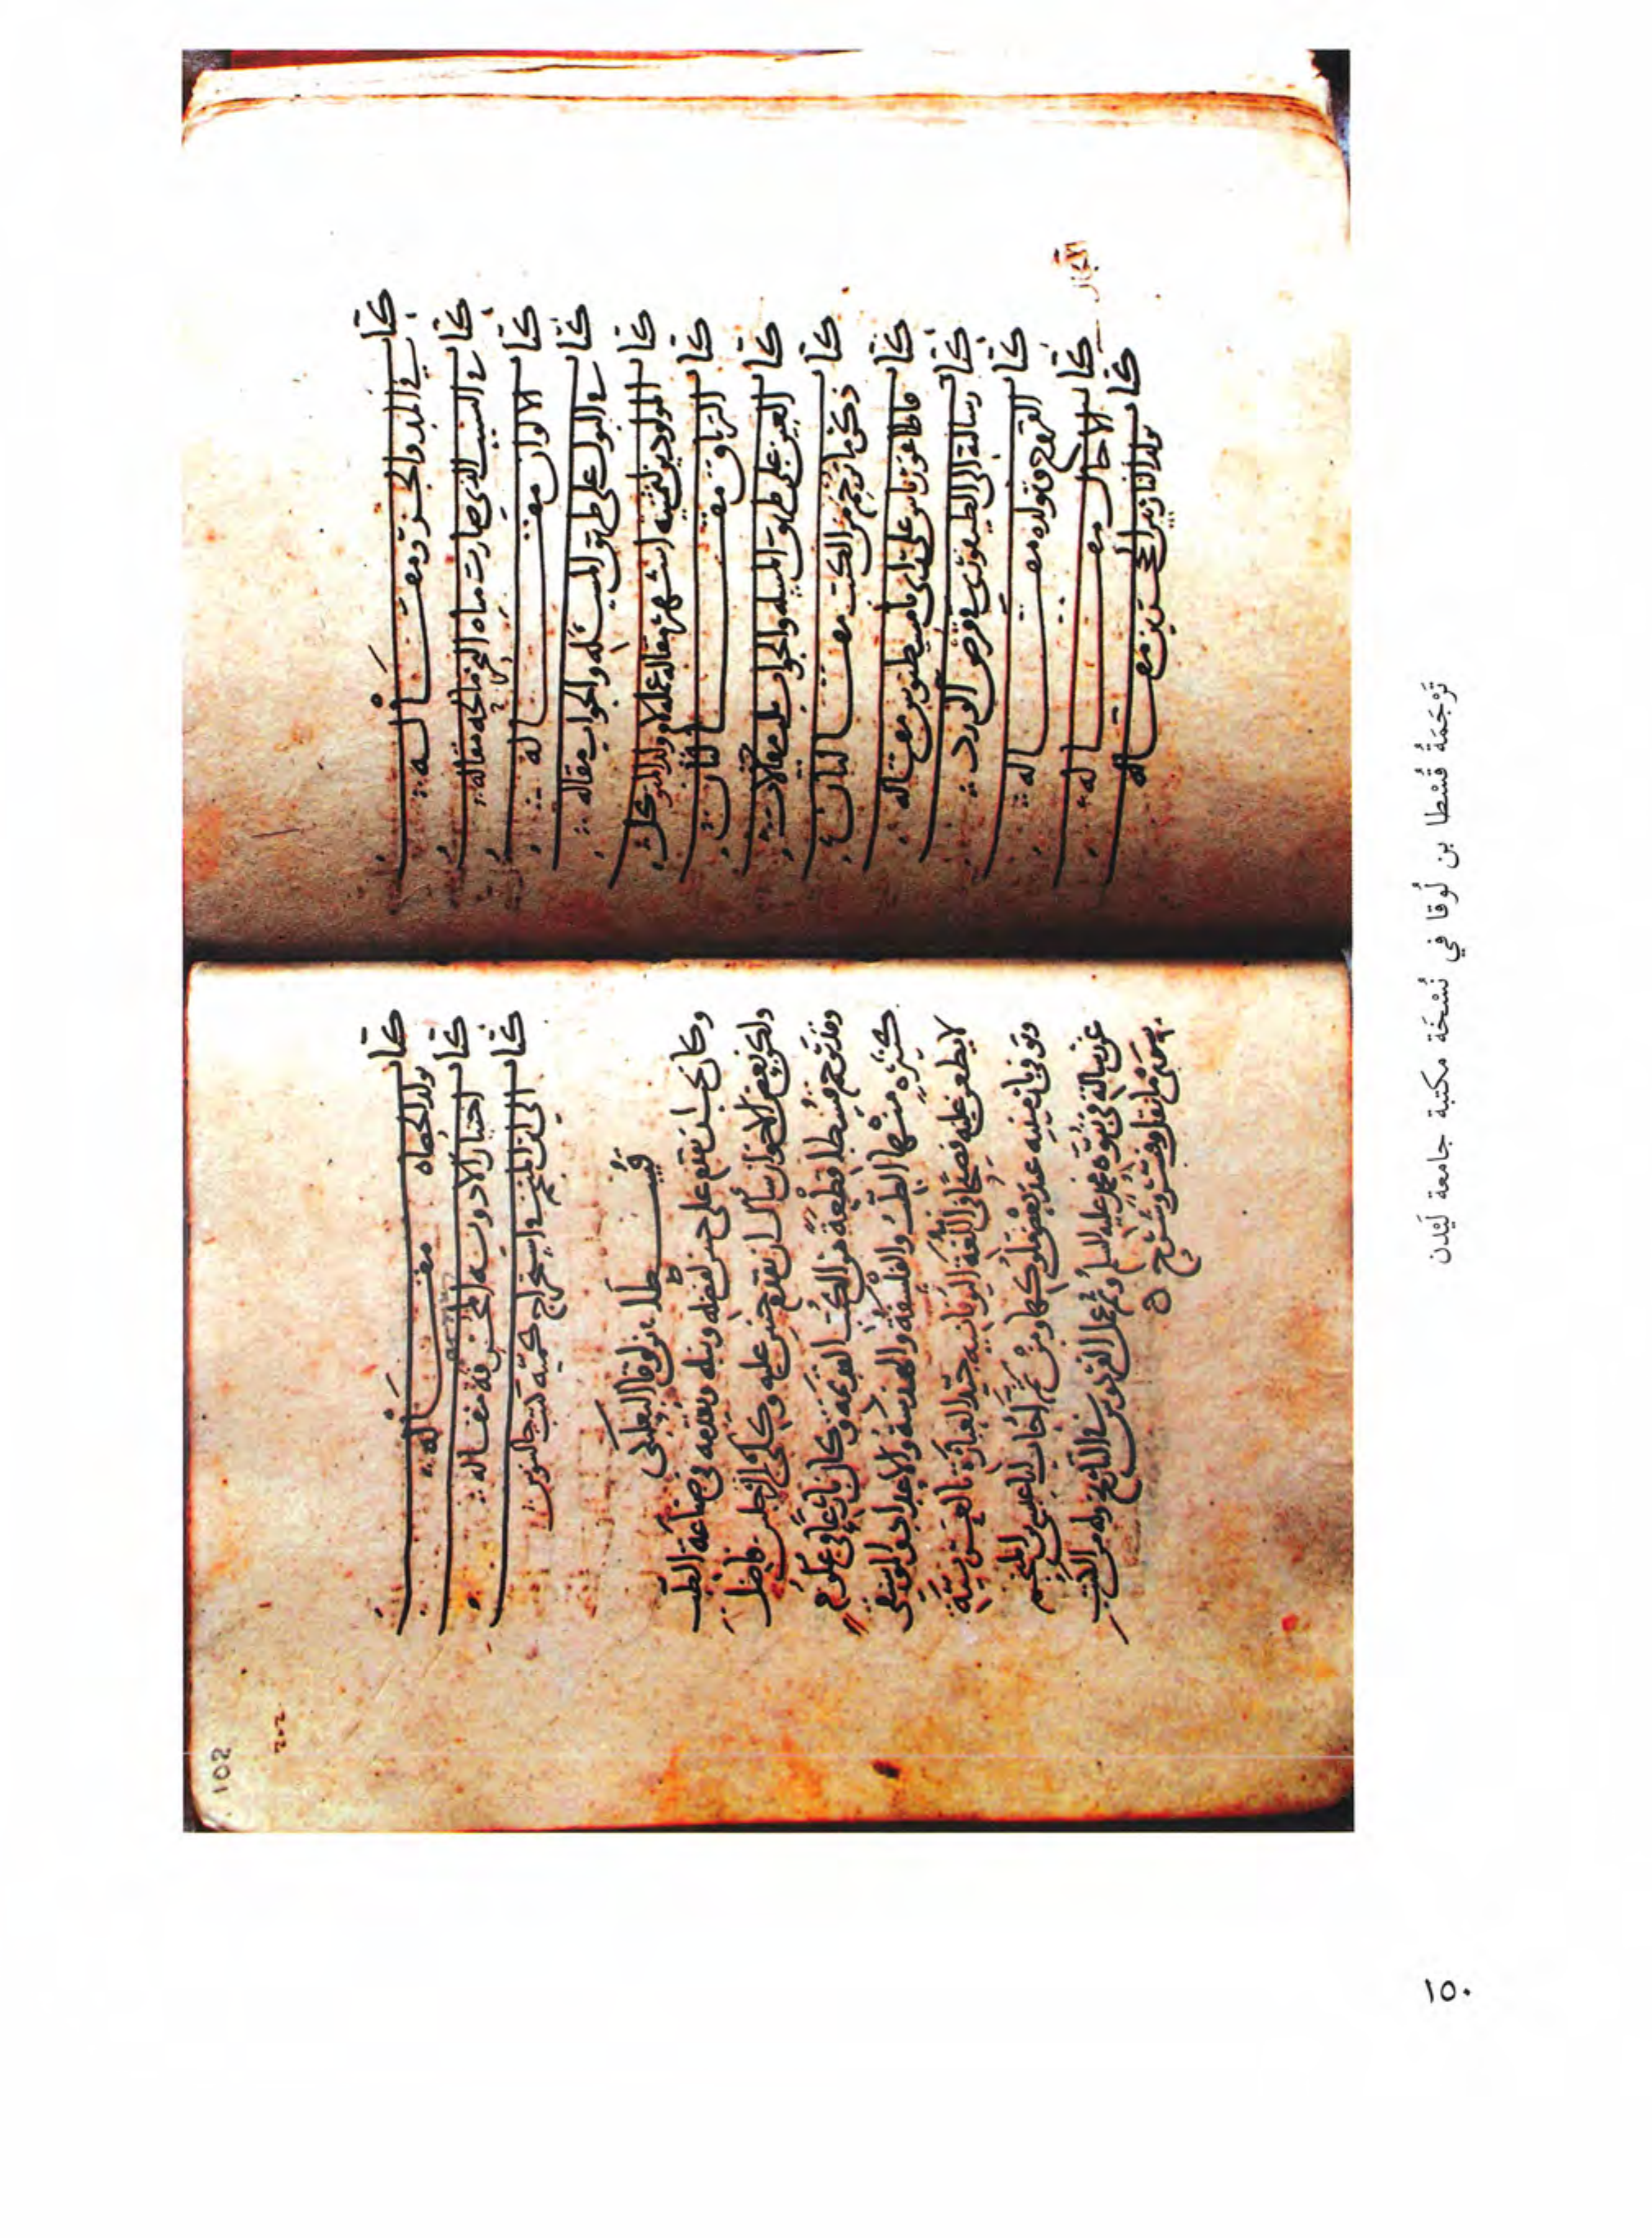 كتاب في المد والجزر مقالة
كتاب في السبب الذي صارت مياه البحر مالحة مقالة
كتاب الالوان مقالة
كتاب في البول على طريق المسئلة والجواب مقاله
كتاب المولودين لثمنيه اشهر مقاله عمله لام ولد المتوكل
كتاب الترياق مقالتان
كتاب العين على طريق المسله والجواب ثلث مقالات
كتاب ذكر ما ترجم من الكتب مقالتان
كتاب قاطاغورياس على راي ثامسيطيوس مقاله
كتاب رسالة الى الطيفوري في قرص الورد
كتاب القروح وتولده مقاله
كتاب الاجال مقاله
الآجال
كتاب تولد النار بين الحجرين مقاله
102
٢٠٢
كتاب تولد الحصاه مقالة
كتاب اختيار الادويه المحرقة مقاله
كتاب الى ابن المنجم في استخراج كمية كتب جالينوس
قسطا بن لوقا البعلبكي
وكان يجب ان يقدم على حنين لفضله ونبله وتقدمه في صناعة الطب
ولكن بعض الاخوان سأل ان يقدم حنين عليه وكلى الرجلين فاضل
وقد ترجم قسطا قطعة من الكتب القديمة وكان بارعا في علوم
كثيره منها الطب والفلسفة والهندسة والاعداد والموسيقى
لا يطعن عليه فصيحا في اللغة اليونانيه جيد العبارة بالعربية
وتوفي بارمينيه عند بعض ملوكها ومن ثم اجاب ابا عيسى بن المنجم
عن رسالته في نبوة محمد عليه السلم وثم عمل الفردوس في التاريخ وله من الكتب
سوى ما نقل وفسر وشرح
ترجمة قسطا بن لوقا في نسخة مكتبة جامعة ليدن
١٥٠